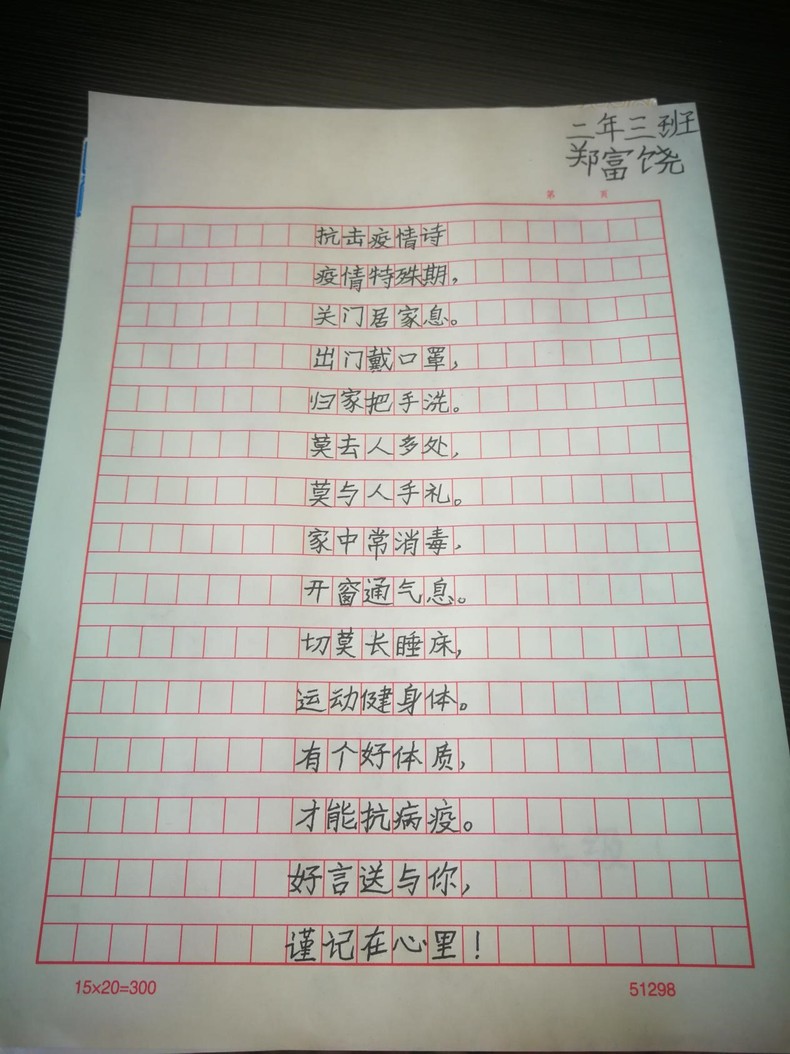 二年三班
郑富饶
第 页
抗击疫情诗
疫情特殊期,
关门居家息。
出门戴口罩,
归家把手洗。
莫去人多处,
莫与人手礼。
家中常消毒,
开窗通气息。
切莫长睡床,
运动健身体。
有个好体质,
才能抗病疫。
好言送与你,
谨记在心里!
15×20=300 51298